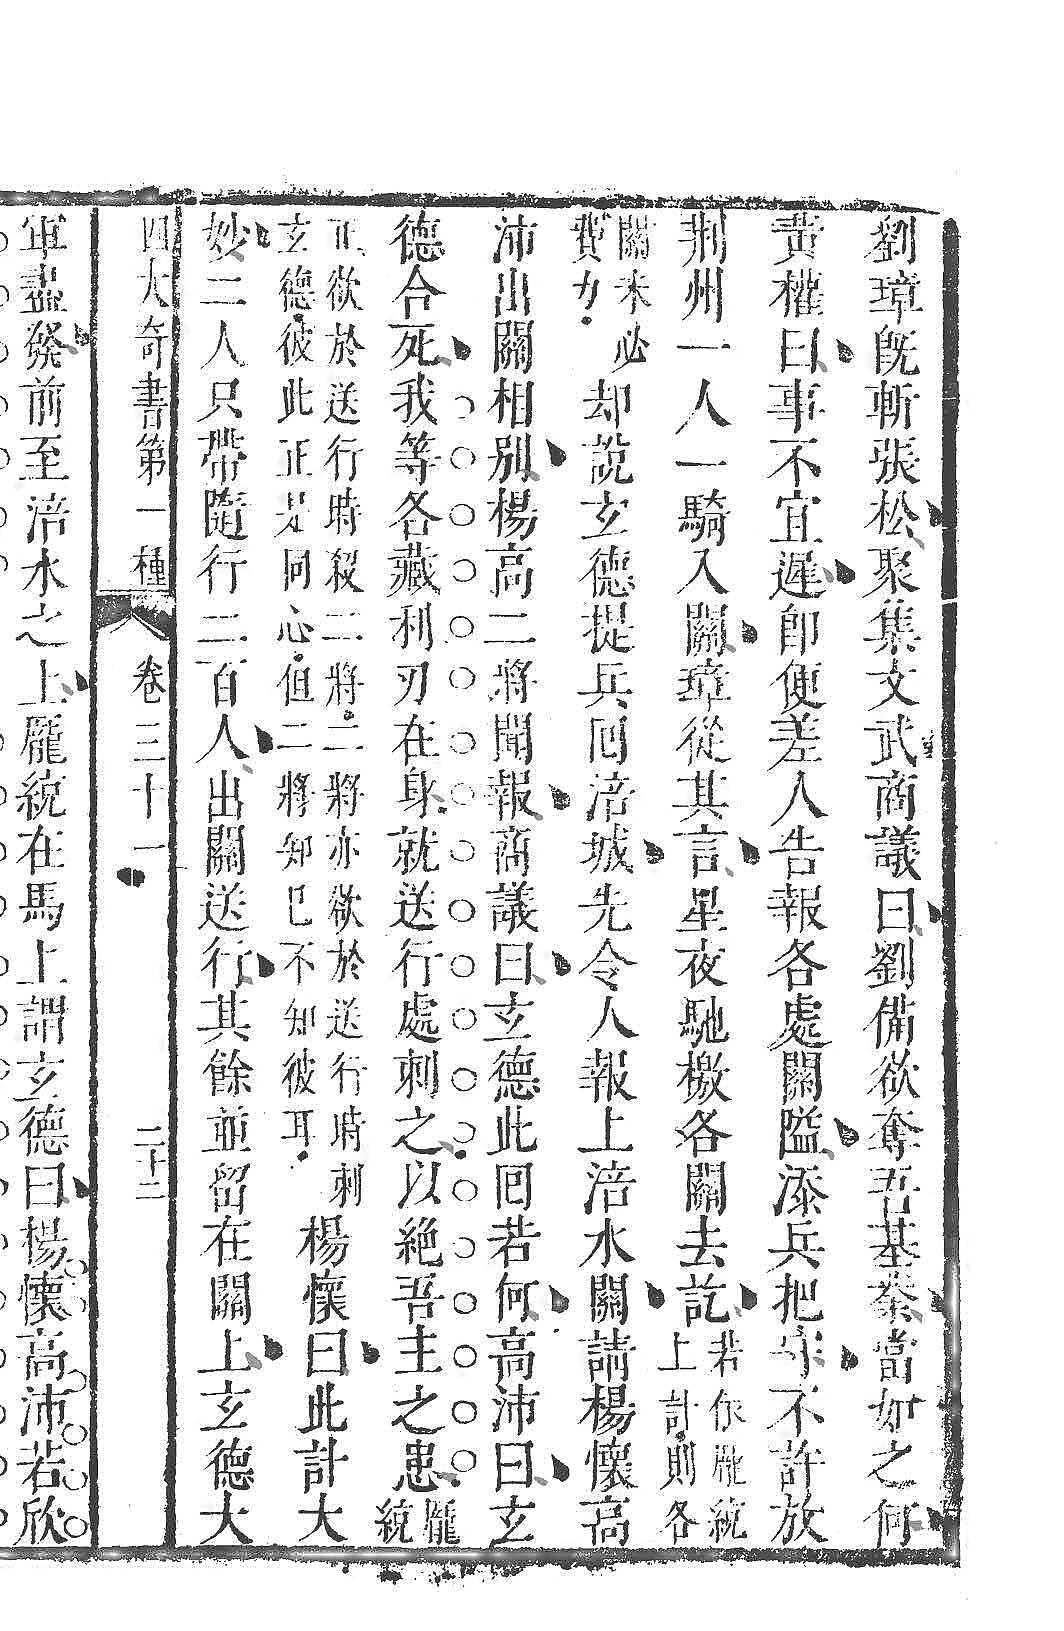 劉璋既斬張松聚集文武商議曰劉備欲奪吾基業當如之何
黃權曰事不宜遲即便差人告報各處關隘添兵把守不許放
荆州一人一騎入關璋從其言星夜馳檄各關去訖若依龐統上計則各
關未必費力却說玄德提兵囘涪城先令人報上涪水關請楊懷高
沛出關相別楊高二將聞報商議曰玄德此囘若何高沛曰玄
德合死我等各藏利刃在身就送行處刺之以絶吾主之患龐統
正欲於送行時殺二將二將亦欲於送行時刺玄德彼此正是同心但二將知己不知彼耳楊懷曰此計大
妙二人只帶隨行二百人出關送行其餘並留在關上玄德大
四大奇書第一種 卷三十一 二十二
軍盡發前至涪水之上龐統在馬上謂玄德曰楊懷高沛若欣